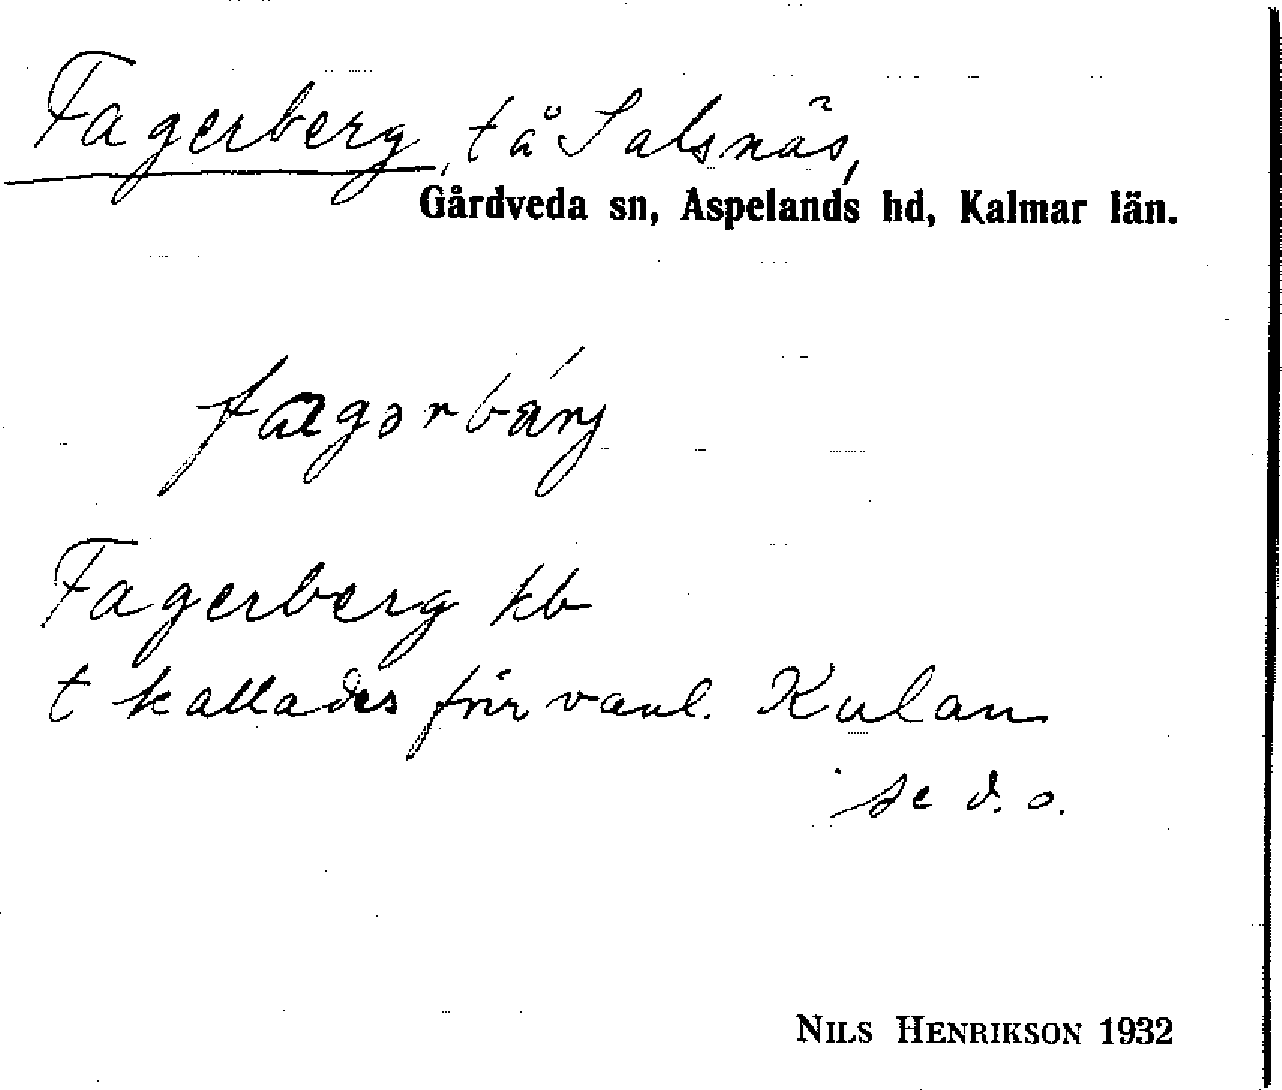 Fagerberg, t å Salsnäs,
Gårdveda sn, Aspelands hd, Kalmar län.
fagərbärj
Fagerberg kb
t kallades förr vanl. Kulan
se d. o.
NILS HENRIKSON 1932